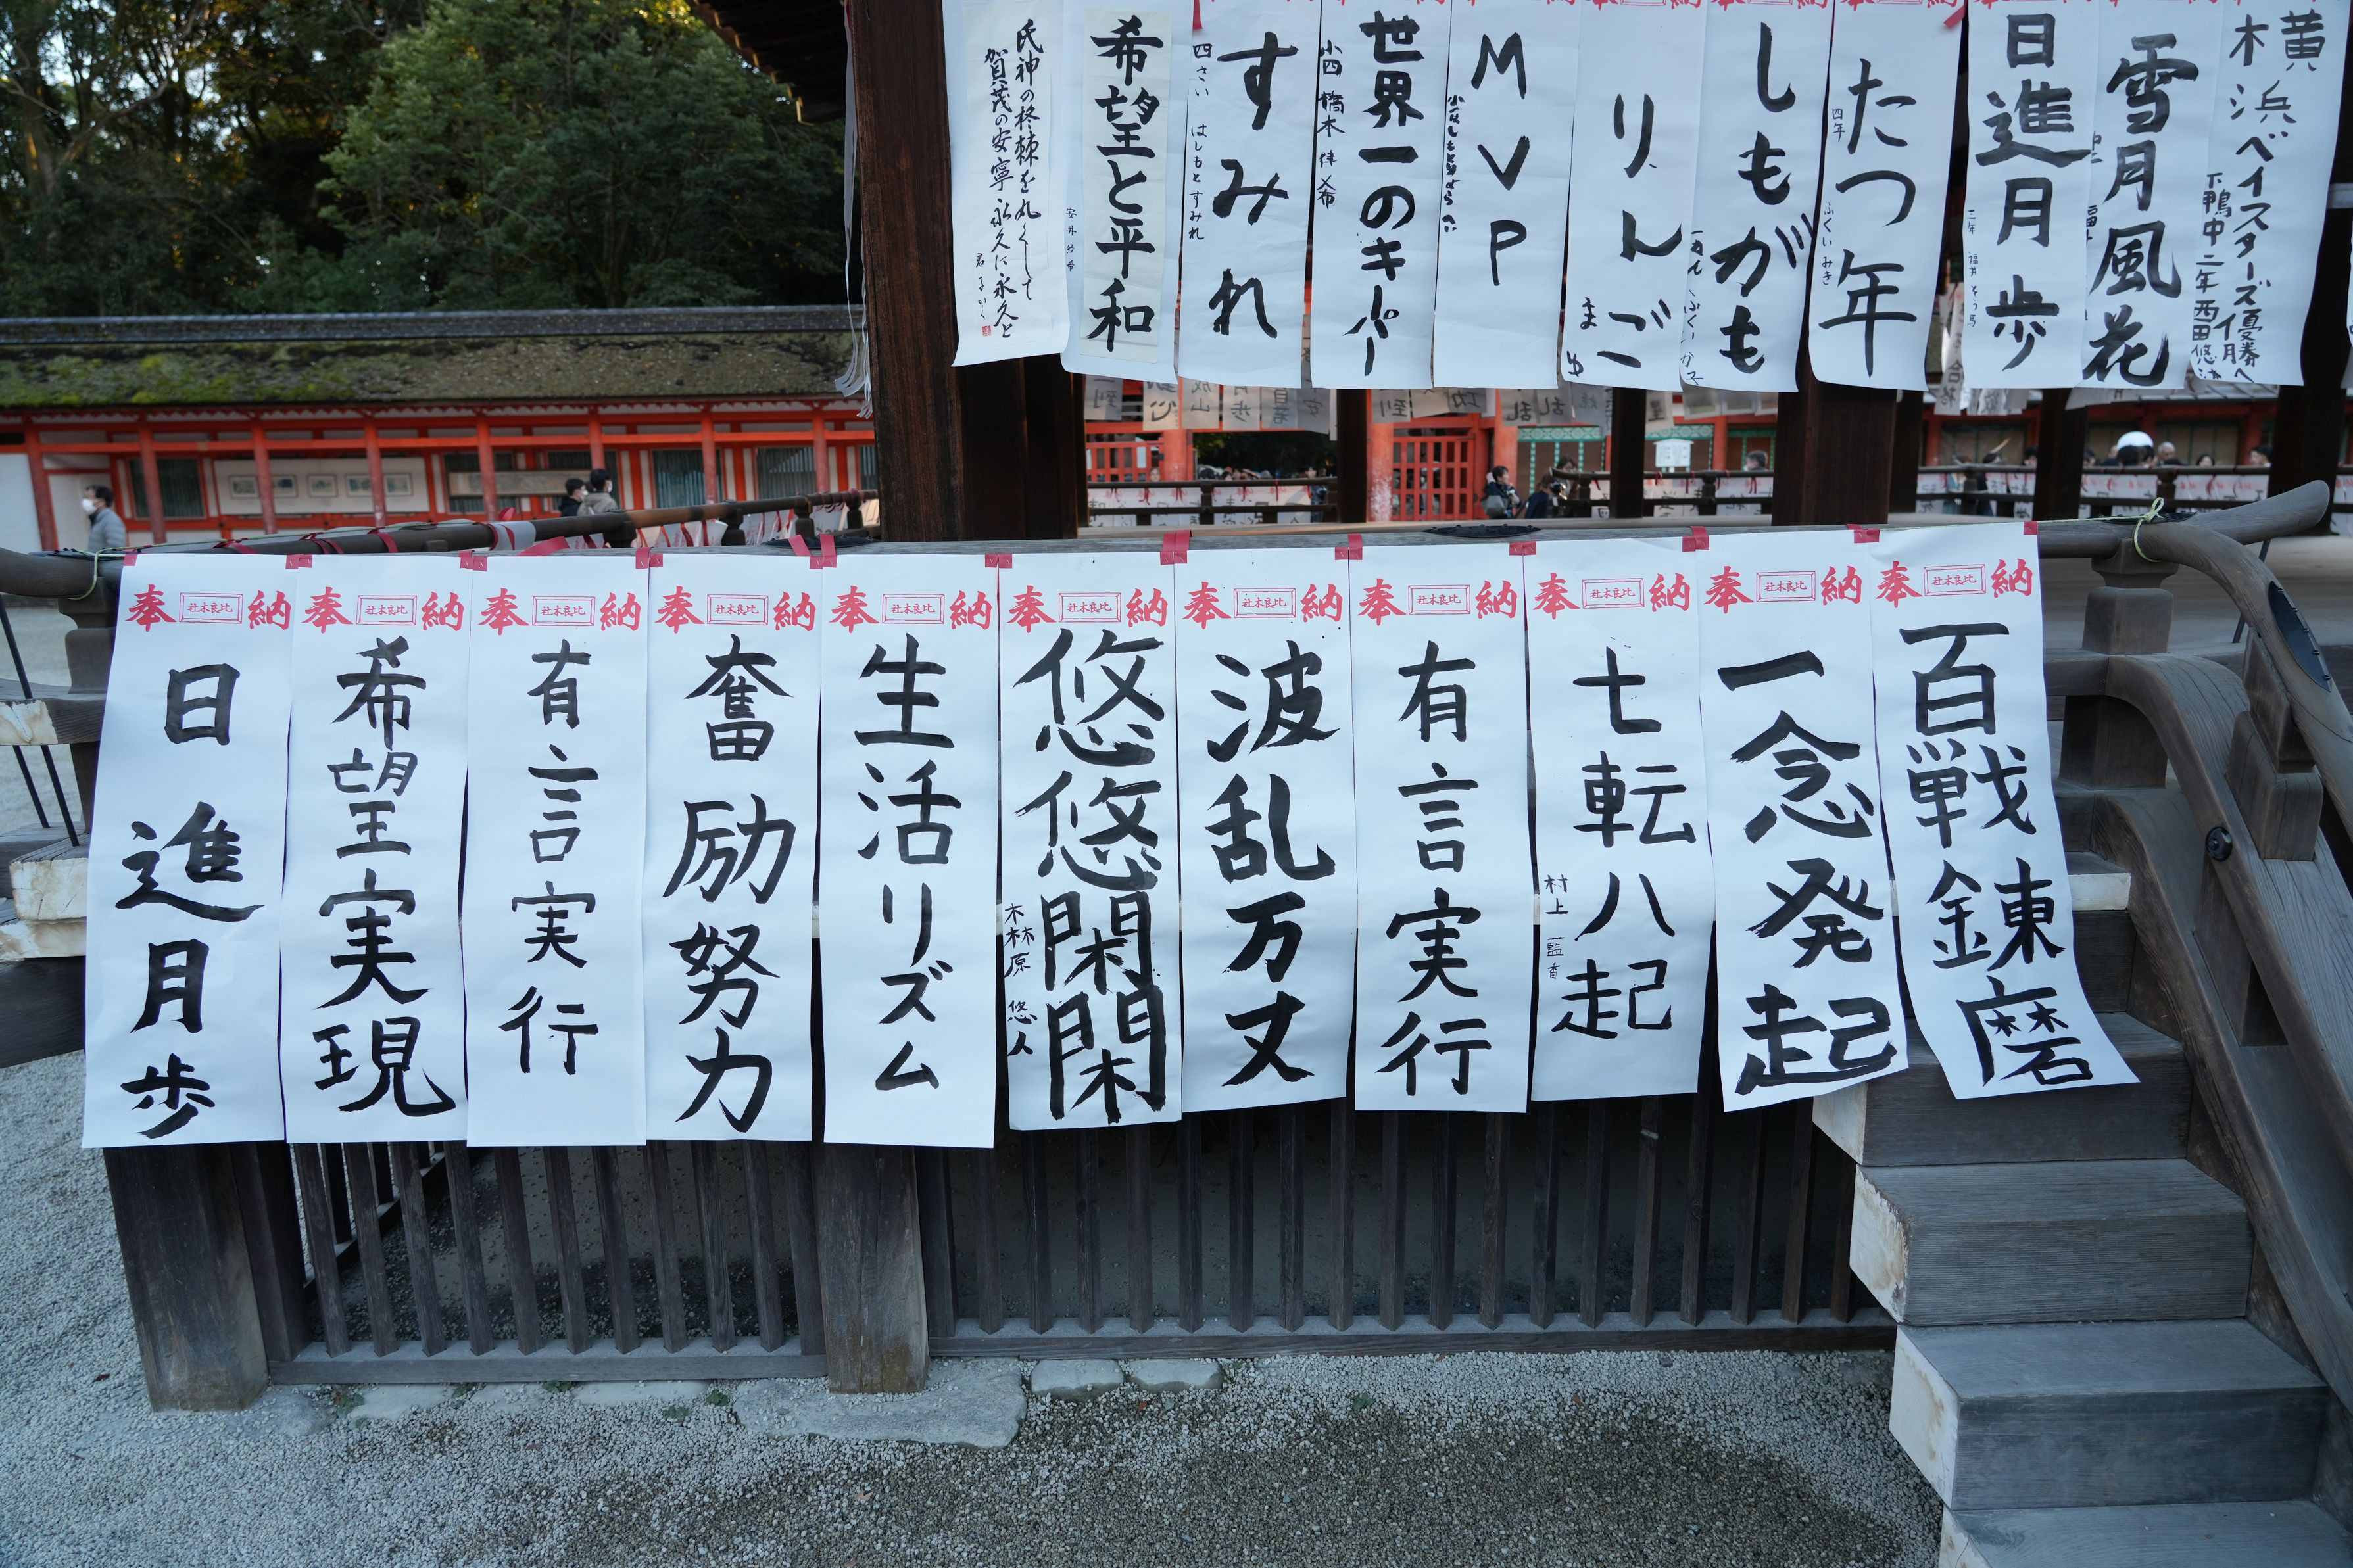 氏神の柊棘を丸くして
賀茂の安寧永久に永久と
希望と平和
すみれ
四さい はしもとすみれ
世界一のキーパー
MVP
りんご
まゆ
しもがも
たつ年
四年 ふくいみき
日進月歩
雪月風花
横浜ベイスターズ優勝へ
下鴨中二年西田悠
奉 社木良比 納
日進月歩
奉 社木良比 納
希望実現
奉 社木良比 納
有言実行
奉 社木良比 納
奮励努力
奉 社木良比 納
生活リズム
奉 社木良比 納
悠悠閑閑
木林原 悠人
奉 社木良比 納
波乱万丈
奉 社木良比 納
有言実行
奉 社木良比 納
七転八起
村上
奉 社木良比 納
一念発起
奉 社木良比 納
百戦錬磨